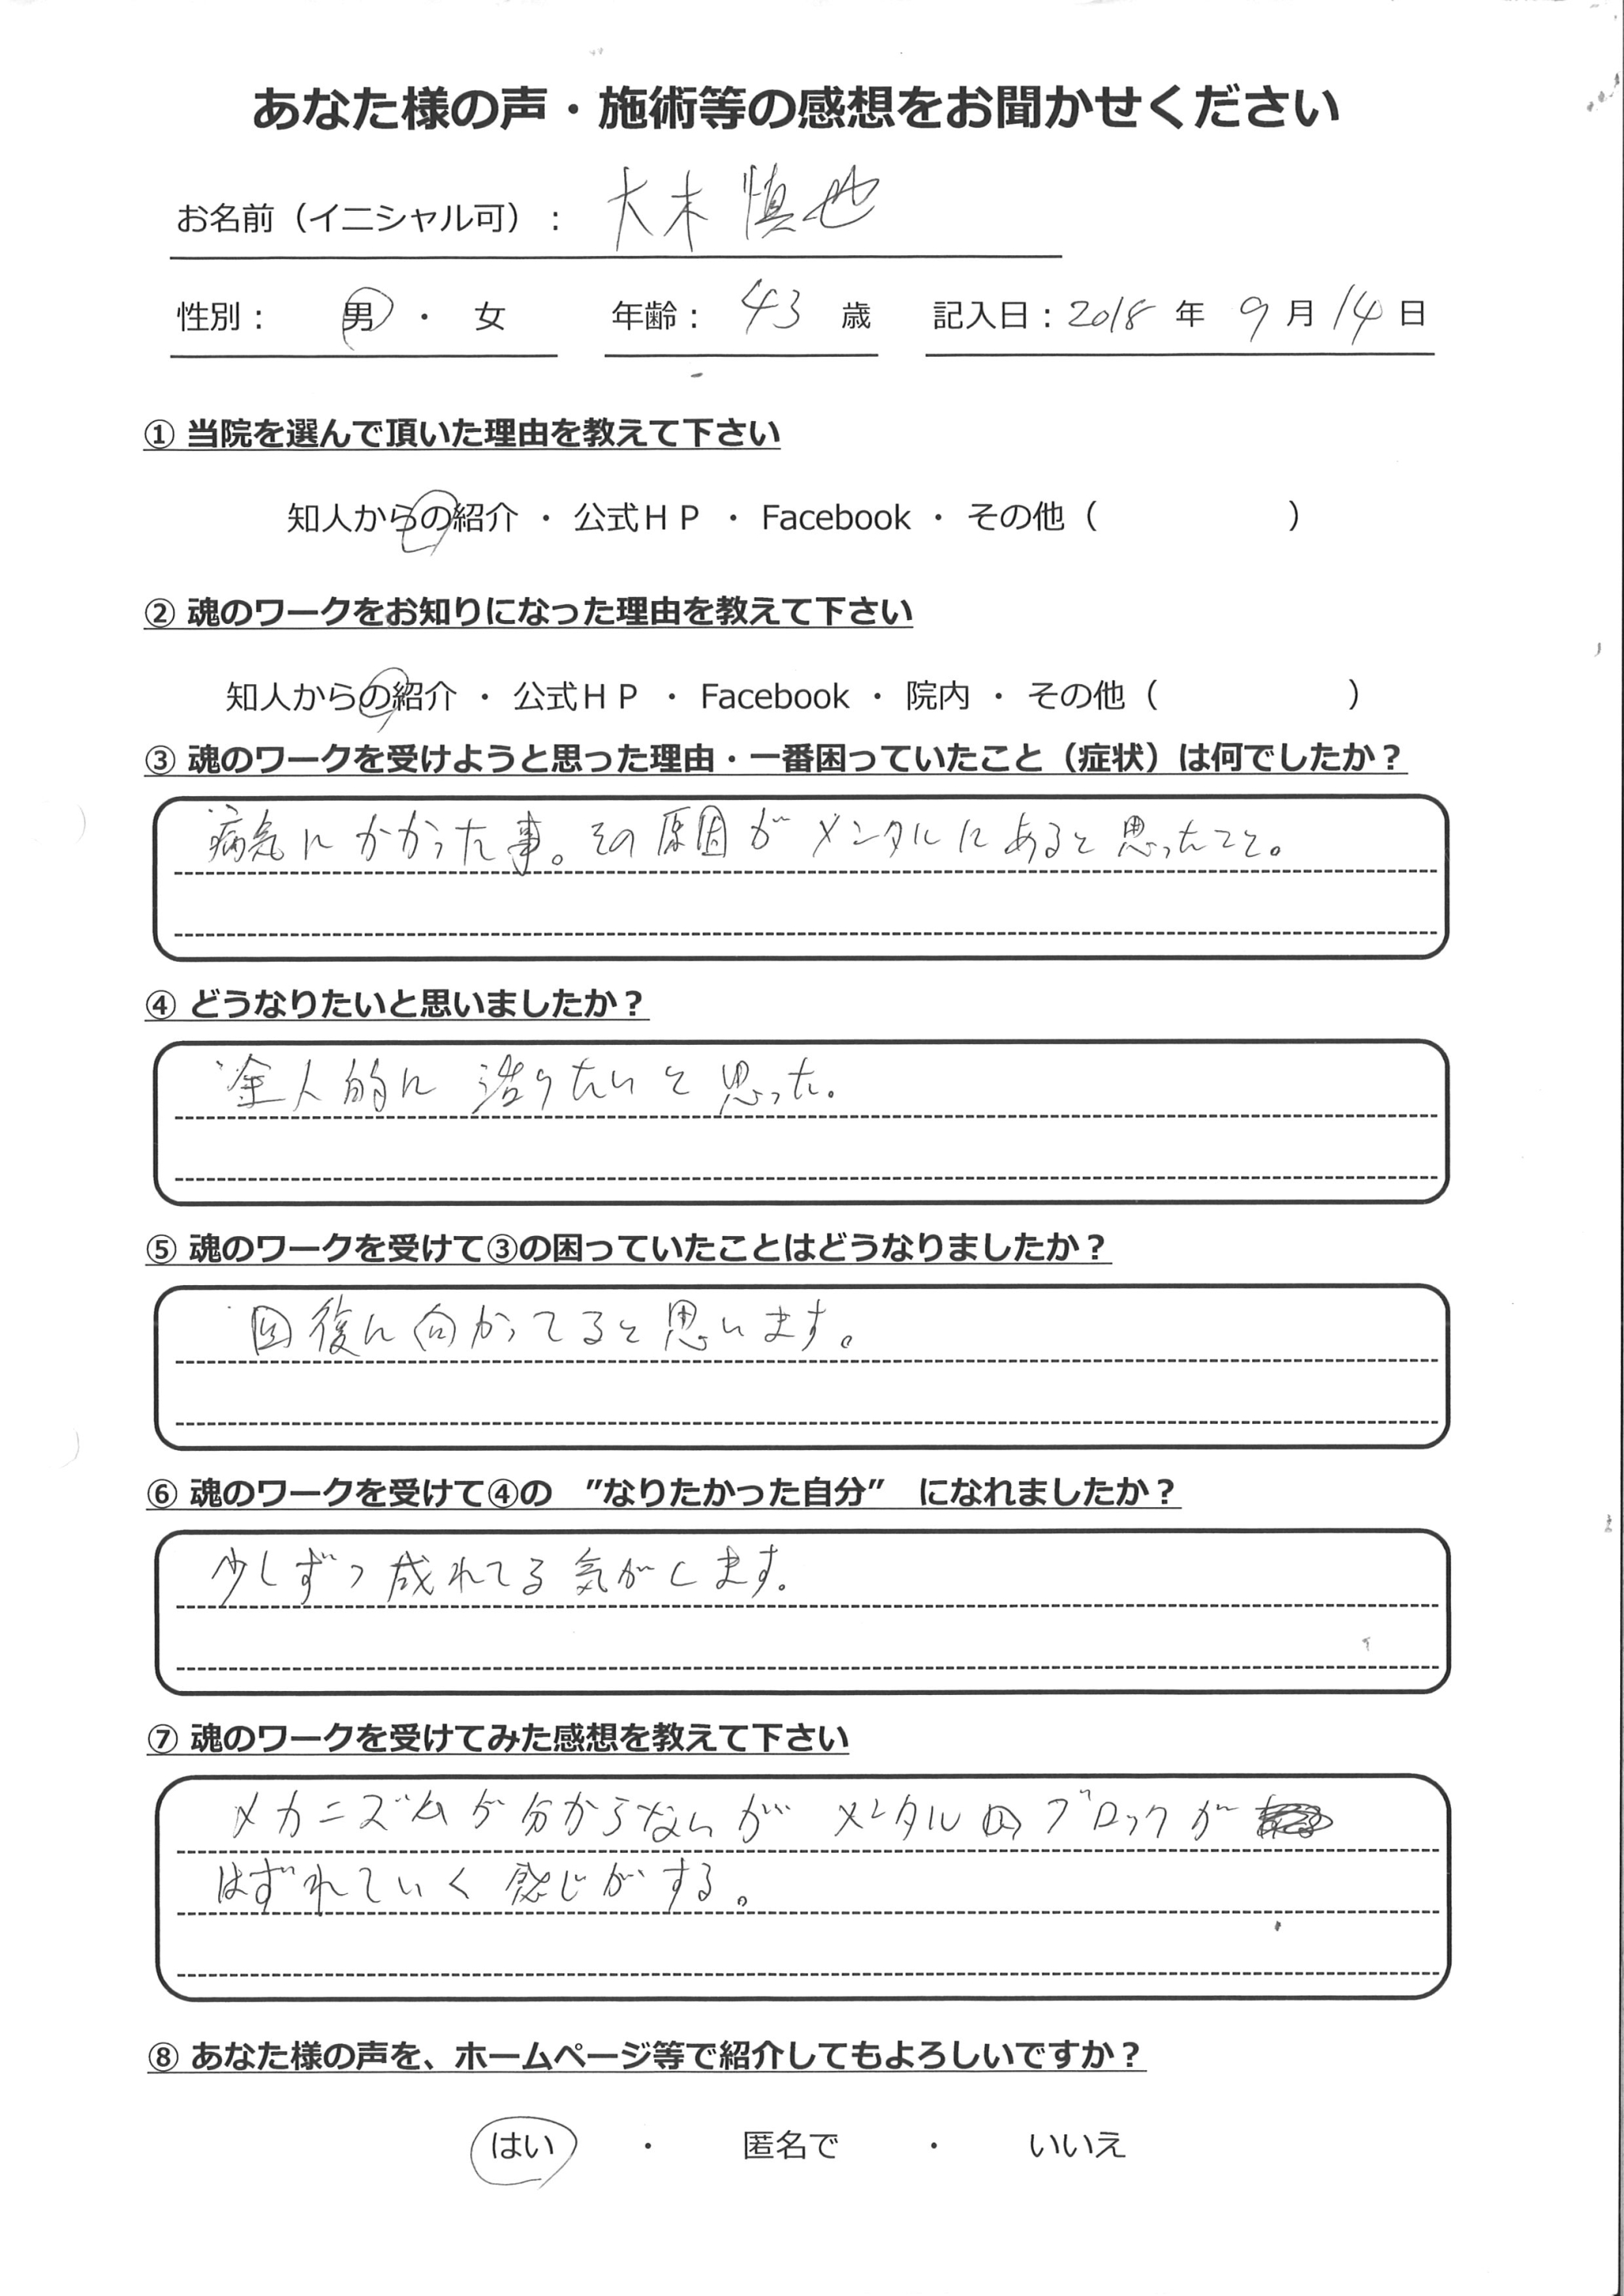 あなた様の声・施術等の感想をお聞かせください
お名前（イニシャル可）： 大木 慎也
性別： 男 ・ 女 年齢： 43 歳 記入日：2018 年 9 月 14 日
① 当院を選んで頂いた理由を教えて下さい
知人からの紹介 ・ 公式ＨＰ ・ Facebook ・ その他（ ）
② 魂のワークをお知りになった理由を教えて下さい
知人からの紹介 ・ 公式ＨＰ ・ Facebook ・ 院内 ・ その他（ ）
③ 魂のワークを受けようと思った理由・一番困っていたこと（症状）は何でしたか？
病気にかかった事。その原因がメンタルにあると思ったこと。
④ どうなりたいと思いましたか？
全人的に治りたいと思った。
⑤ 魂のワークを受けて③の困っていたことはどうなりましたか？
回復に向かってると思います。
⑥ 魂のワークを受けて④の ”なりたかった自分” になれましたか？
少しずつ成れてる気がします。
⑦ 魂のワークを受けてみた感想を教えて下さい
メカニズムが分からないが メンタルのブロックが
はずれていく感じがする。
⑧ あなた様の声を、ホームページ等で紹介してもよろしいですか？
はい ・ 匿名で ・ いいえ